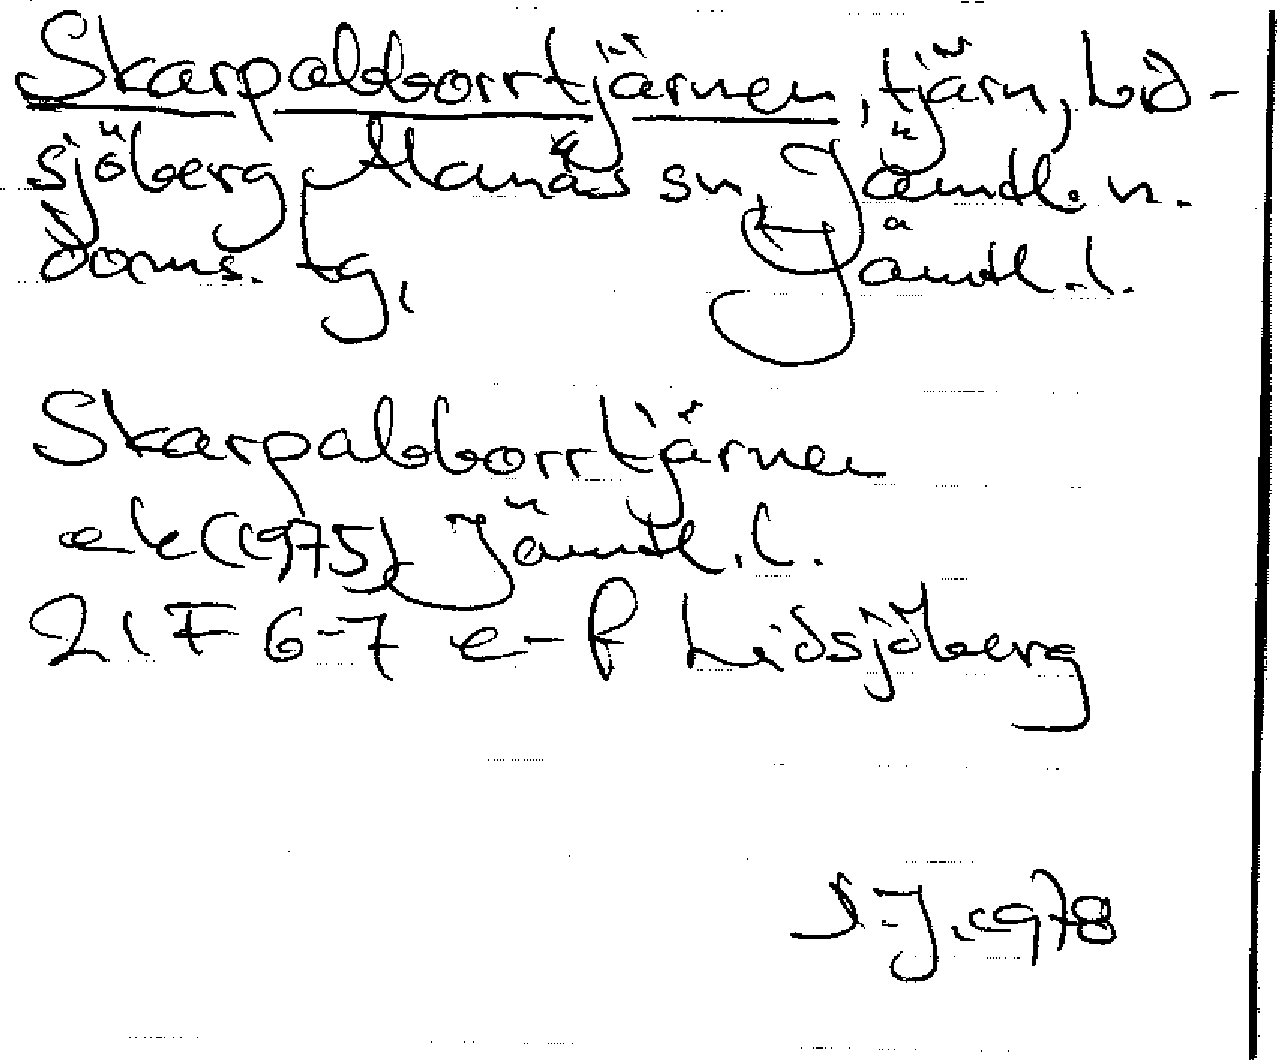 Skarpabborrtjärnen, tjärn, Lid-
sjöberg, Alanäs sn, Jämtl. n.
doms. tg, Jämtl. l.
Skarpabborrtjärnen
ek (1975) Jämtl. l.
21 F 6-7 e-f Lidsjöberg
S.J. 1978